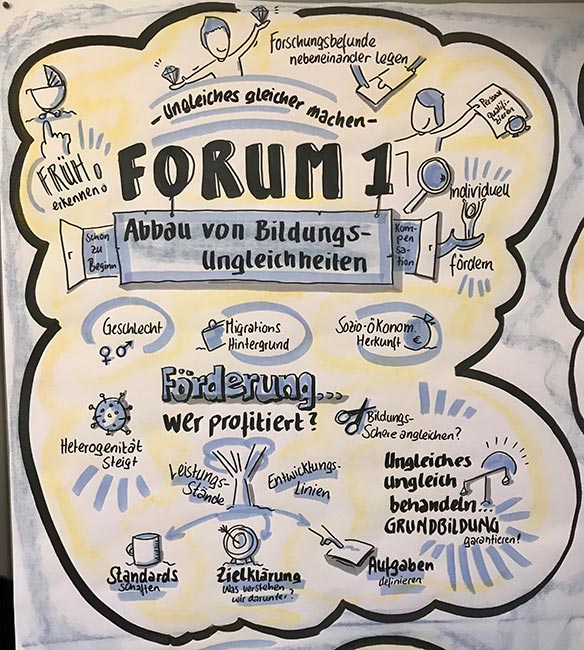 Forschungsbefunde
nebeneinander legen
- Ungleiches gleicher machen -
Personal
qualifi-
zieren
FRÜH
erkennen!
FORUM 1
Individuell
fördern
Schon
zu
Beginn
Abbau von Bildungs-
Ungleichheiten
Kom-
pen
sa-
tion
Geschlecht
♀♂
Migrations
Hintergrund
Sozio-Ökonom.
Herkunft
€
Förderung...
wer profitiert?
Bildungs-
Schere angleichen?
Heterogenität
Steigt
Leistungs-
Stände
Entwicklungs-
Linien
Ungleiches
ungleich
behandeln...
GRUNDBILDUNG
garantieren!
Standards
schaffen
Zielklärung
Was verstehen
wir darunter?
Aufgaben
definieren